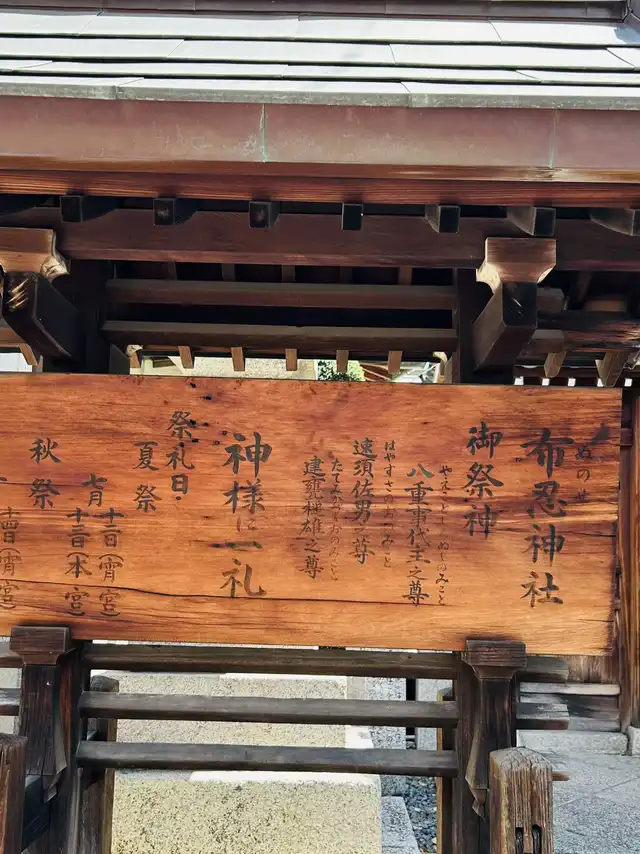 布忍神社
ぬのせ
御祭神
八重事代主之尊
やえことしろぬしのみこと
速須佐男之尊
はやすさのおのみこと
建甕槌雄之尊
神様に一礼
祭礼日
夏祭
七月
十二日(宵宮)
十三日(本宮)
秋祭